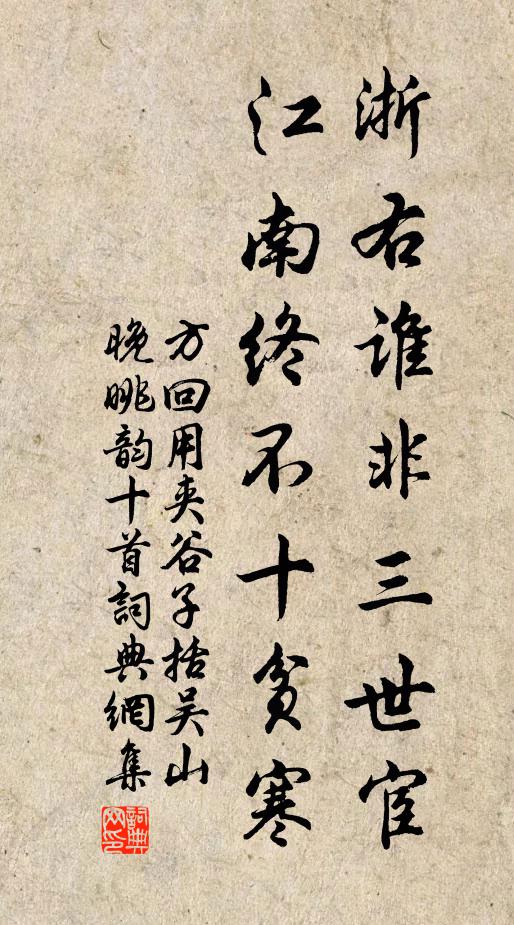 浙右誰非三世宦
江南終不十貧寒
方回用夾谷子括吴山
晚眺韵十首詞典網集
詞典网印